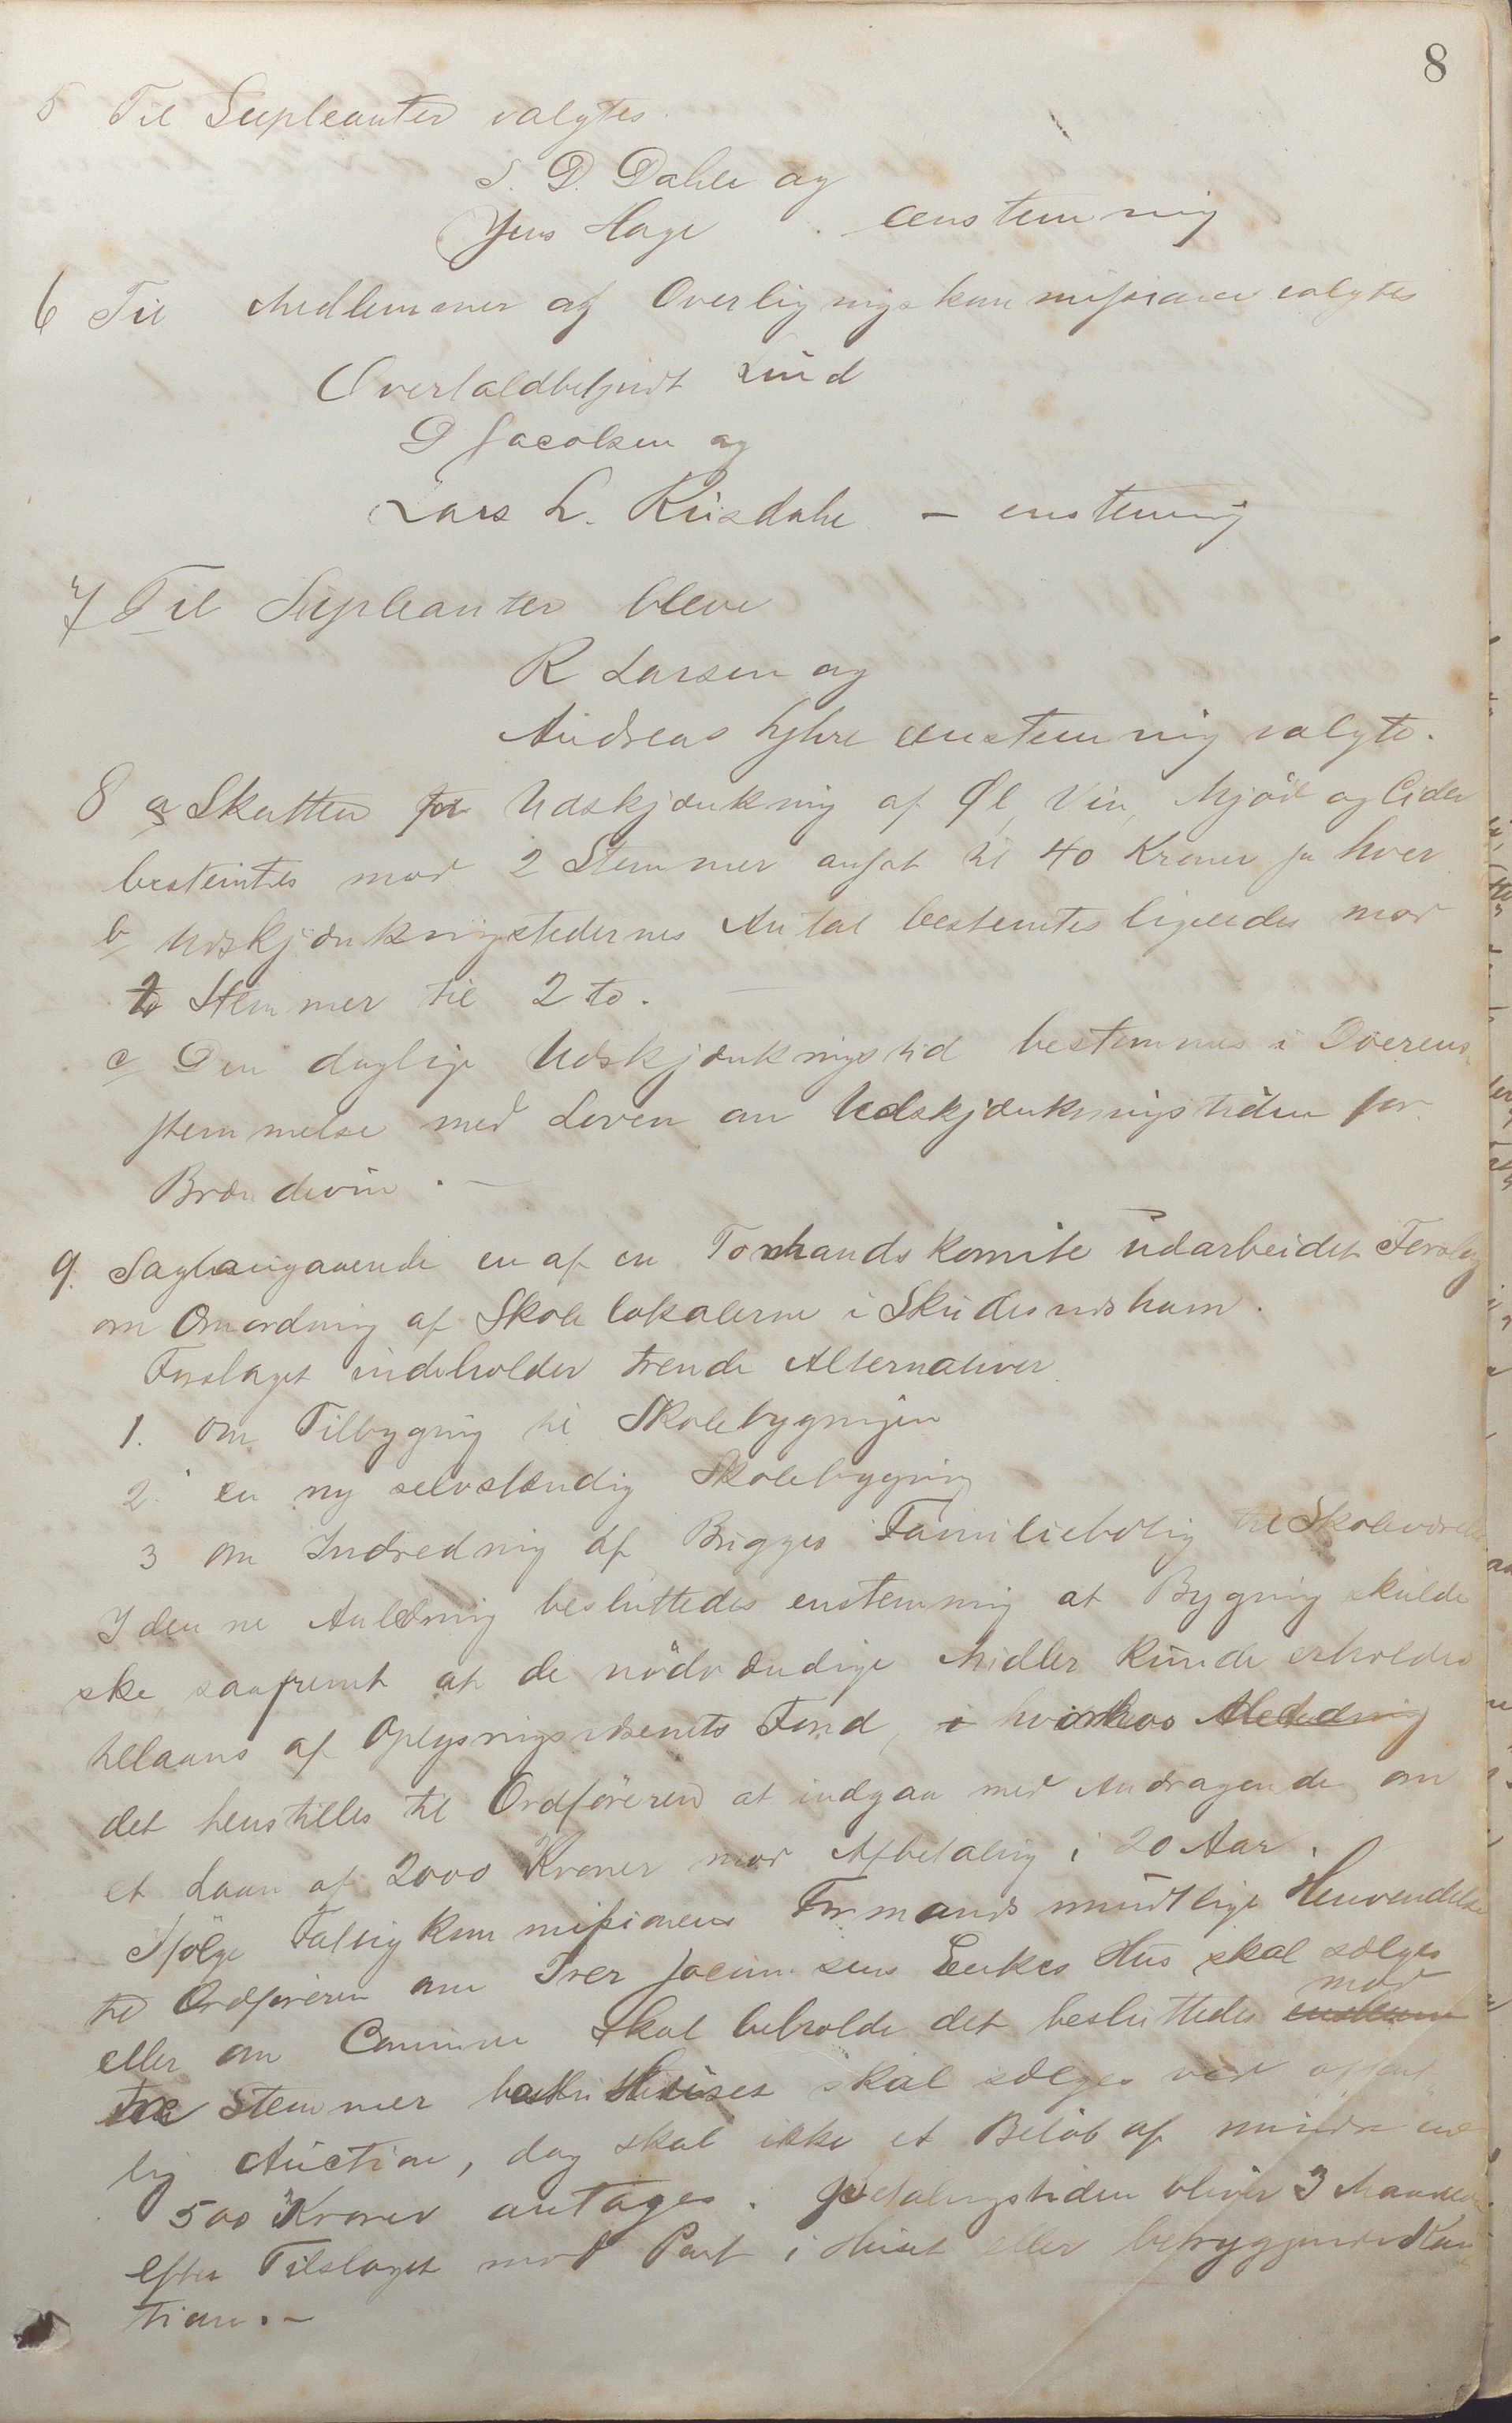 8
5 Til Supleanter valgtes
S. D. Dahle og
Jens Hage . eenstemmig
6 Til Medlemmer af Overligningskommissionen valgtes
Overtoldbetjendt Lund
D Jacobsen og
Lars L. Risdahl – enstemmig
7 Til Supleanter bleve
R Larsen og
Andreas Lyhre eenstemmig valgte.
8 a Skatten for Udskjænkning af Øl, Vin, Mjöd og Cider
bestemtes mod 2 Stemmer ansat til 40 Kroner for hver
b Udskjænkningstedernes Antal bestemtes ligeledes mod
2 Stemmer til 2 to.
c Den daglige Udskjænkningstid bestemmes i Overens-
stemmelse med Loven om Udskjænkningstiden for
Brændevin . –
9. Sag angaaende en af en Tomands komite udarbeidet Forslag
om Omordning af Skolelokalerne i Skudesneshavn.
Forslaget indeholder trende Alternativer
1. om Tilbygning til Skolebygningen
2. en ny selvstændig Skolebygning
3 om Indredning af Brigges Familiebolig til Skoleværelse
I denne Anledning besluttedes enstemmig at Bygning skulde
ske saafremt at de nödvændige Midler kunde erholdes
tillaans af Oplysningsvæsenets Fond, i hvis Anledning
det henstilles til Ordføreren at indgaa med Andragende om
et Laan af 2000 Kroner mod Afbetaling i 20 Aar.
Ifölge Fattigkommissionens Formands mundtlige Henvendelse
til Ordföreren om Iver Jocumsens Enkes Hus skal sælges
eller om Communen skal beholde det besluttedes enstemm mod
tre Stemmer at Huset skal sælges ved offent-
lig Auction, dog skal ikke et Belöb af mindre end
500 Kroner antages. Betalingstiden bliver 3 Maaneder
efter Tilslaget mod Pant i Huset eller betryggende Kau-
tion. –